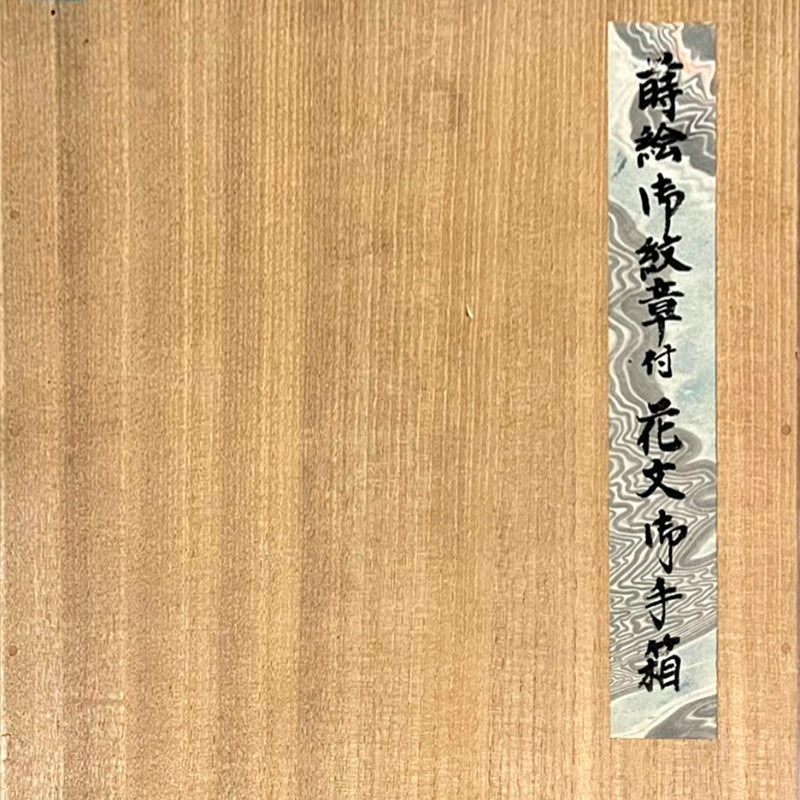 蒔絵御紋章付花文御手箱